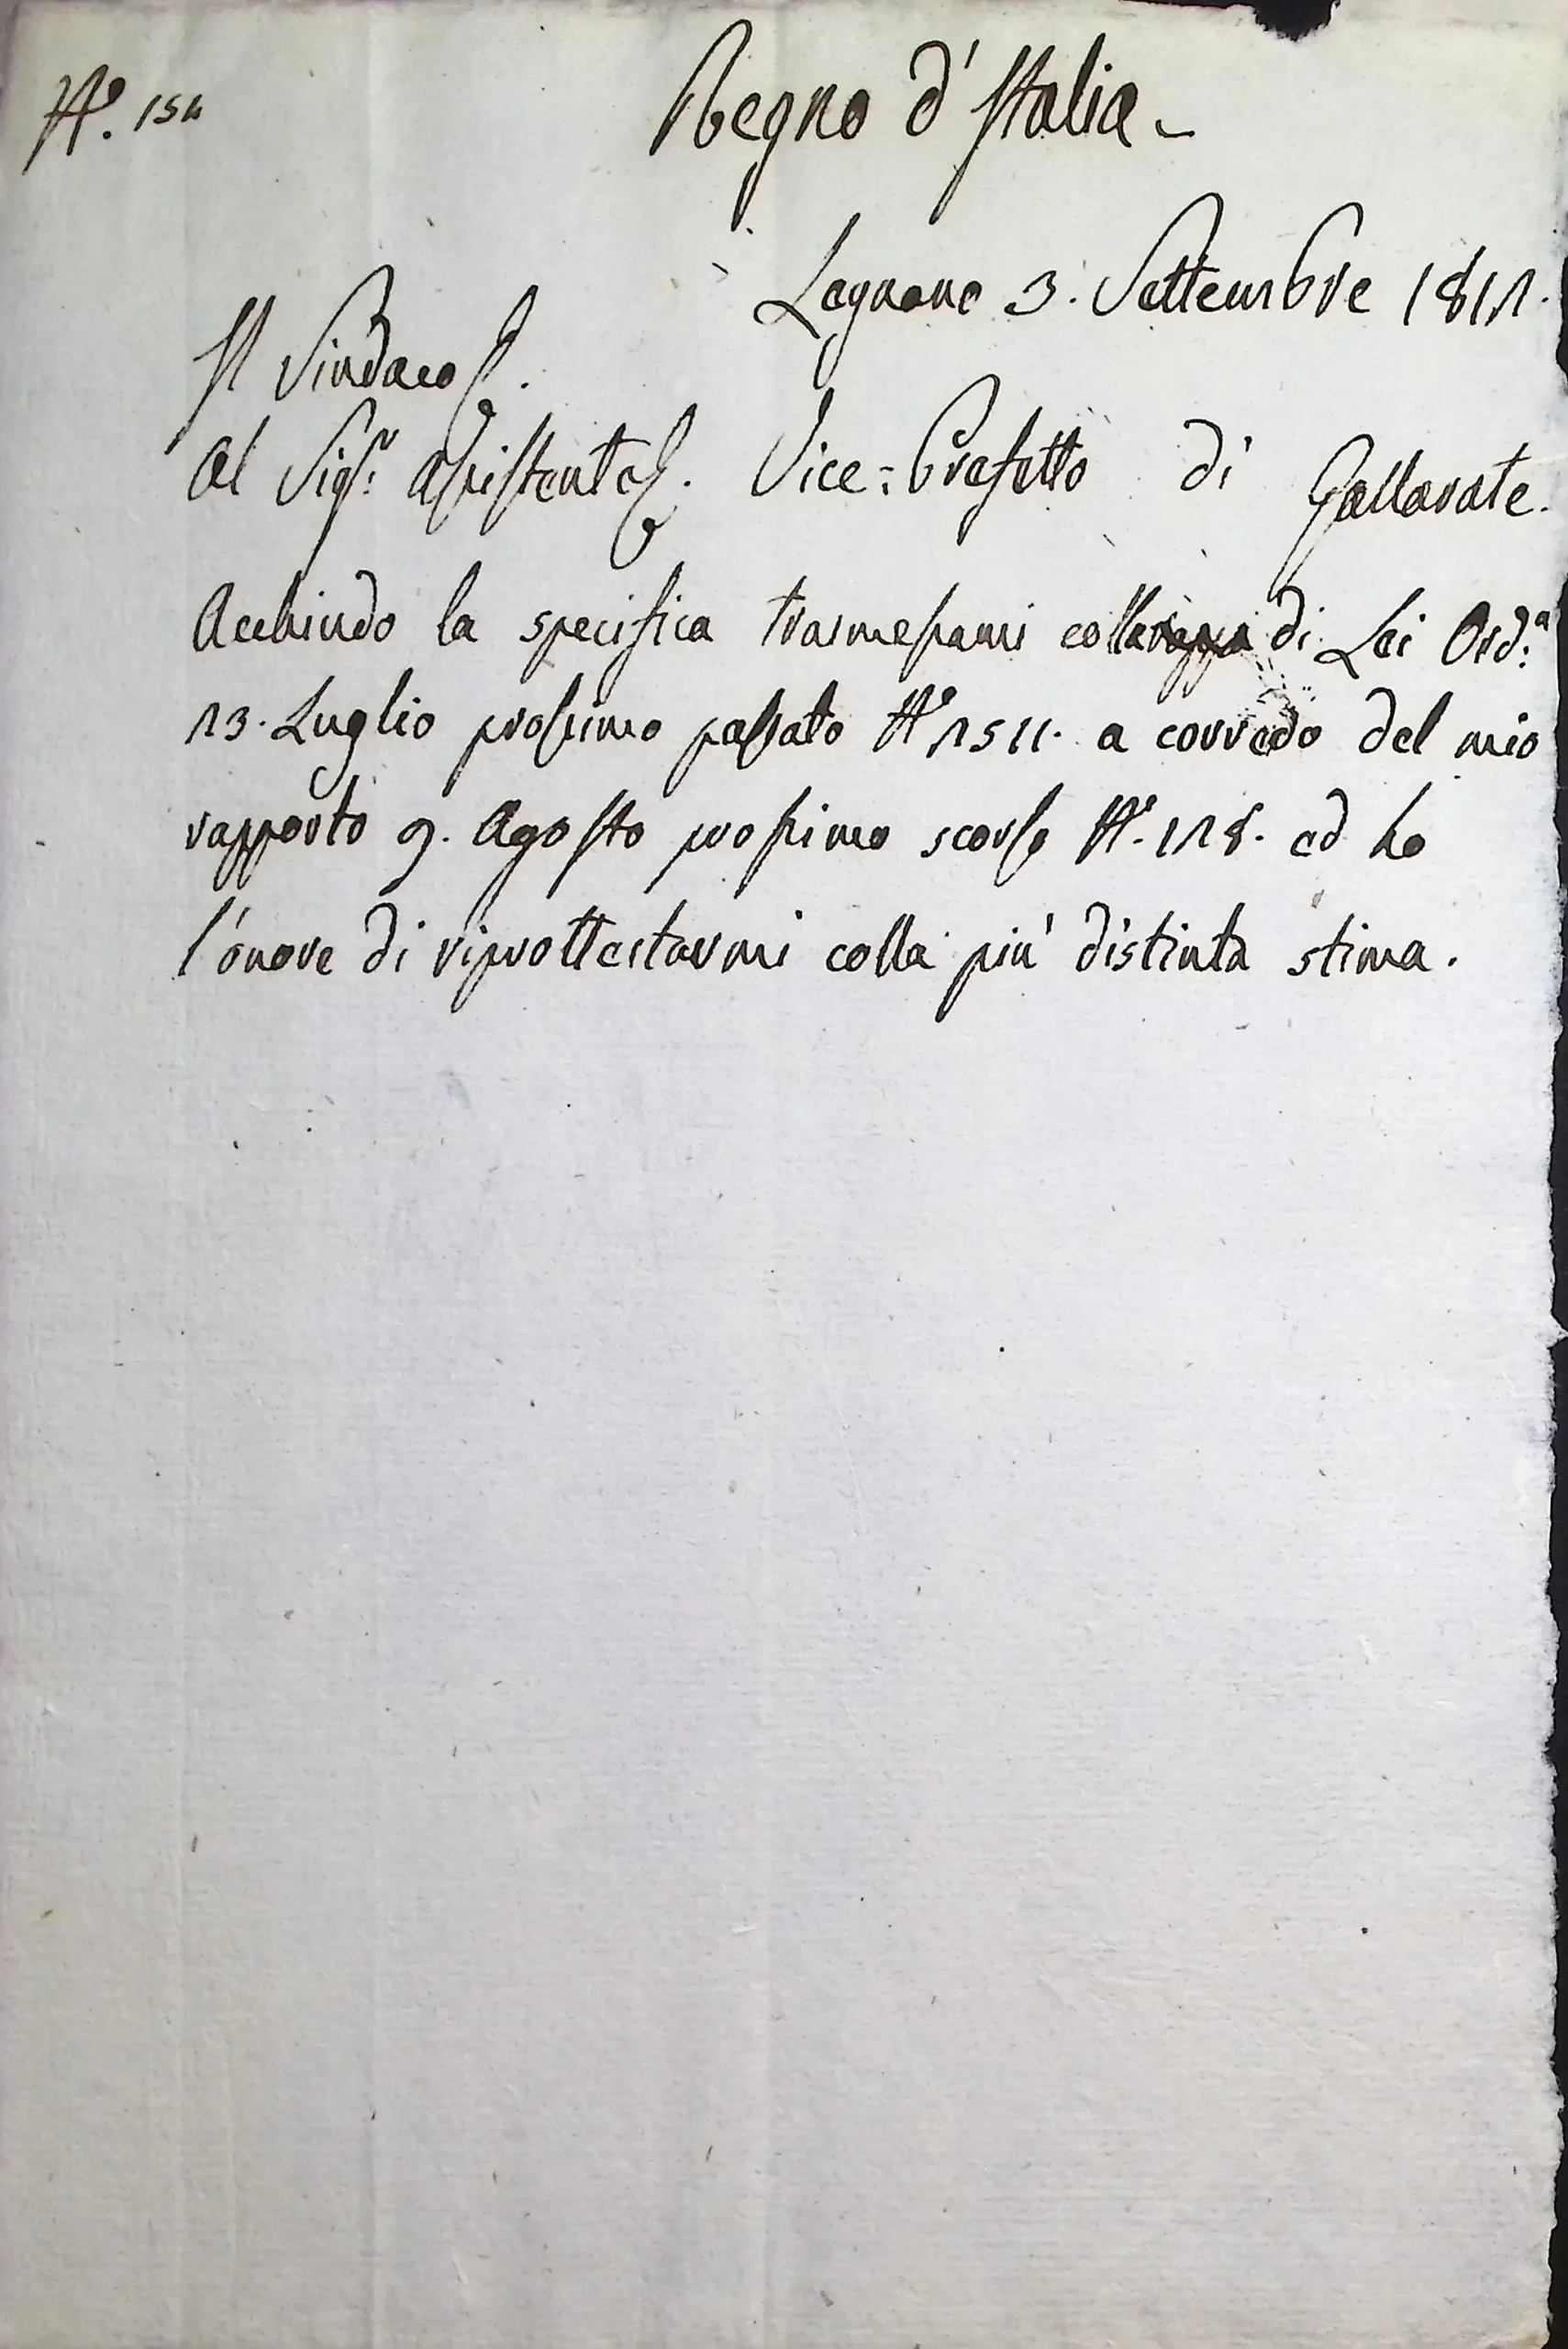 N.° 154
Regno d'Italia -
Legnano 3. Settembre 1811.
Il Sindaco
Al Sig.r Assistente. Vice=Prefetto di Gallarate.
Acchiudo la specifica trasmessami colla di Lei Ord.a
13. Luglio prossimo passato N.° 1511. a corredo del mio
rapporto 9. Agosto prossimo scorso N.° 118. ed ho
l'onore di riprottestarmi colla più distinta stima.